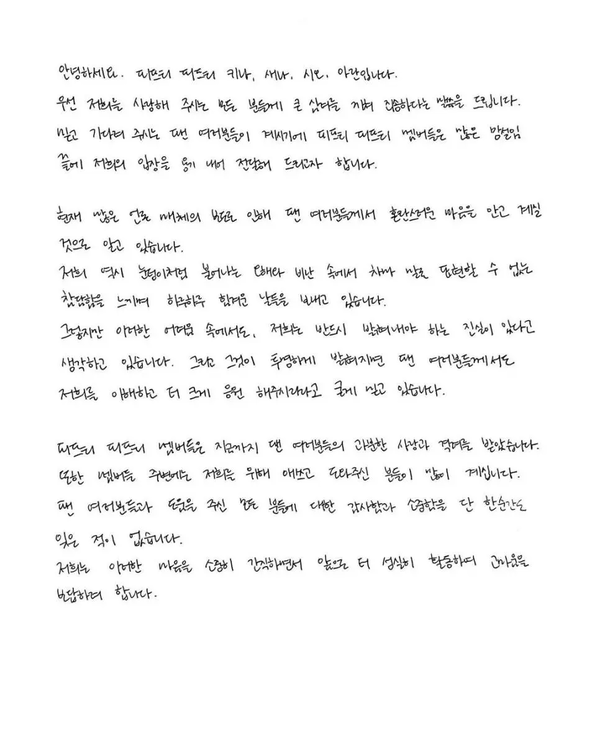 안녕하세요. 피프티 피프티 키나, 새나, 시오, 아란입니다.
우선 저희를 사랑해 주시는 모든 분들에게 큰 심려를 끼쳐 죄송하다는 말씀을 드립니다.
믿고 기다려 주시는 팬 여러분들이 계시기에 피프티 피프티 멤버들은 많은 망설임
끝에 저희의 입장을 용기 내어 전달해 드리고자 합니다.
현재 많은 언론 매체의 보도로 인해 팬 여러분들께서 혼란스러운 마음을 안고 계실
것으로 알고 있습니다.
저희 역시 눈덩이처럼 불어나는 오해와 비난 속에서 차마 말로 표현할 수 없는
참담함을 느끼며 하루하루 힘겨운 날들을 보내고 있습니다.
그렇지만 이러한 어려움 속에서도, 저희는 반드시 밝혀내야 하는 진실이 있다고
생각하고 있습니다. 그리고 그것이 투명하게 밝혀지면 팬 여러분들께서도
저희를 이해하고 더 크게 응원 해주시리라고 굳게 믿고 있습니다.
피프티 피프티 멤버들은 지금까지 팬 여러분들의 과분한 사랑과 격려를 받았습니다.
또한 멤버들 주변에는 저희를 위해 애쓰고 도와주신 분들이 많이 계십니다.
팬 여러분들과 도움을 주신 모든 분들에 대한 감사함과 소중함을 단 한순간도
잊은 적이 없습니다.
저희는 이러한 마음을 소중히 간직하면서 앞으로 더 성실히 활동하며 고마움을
보답하려 합니다.